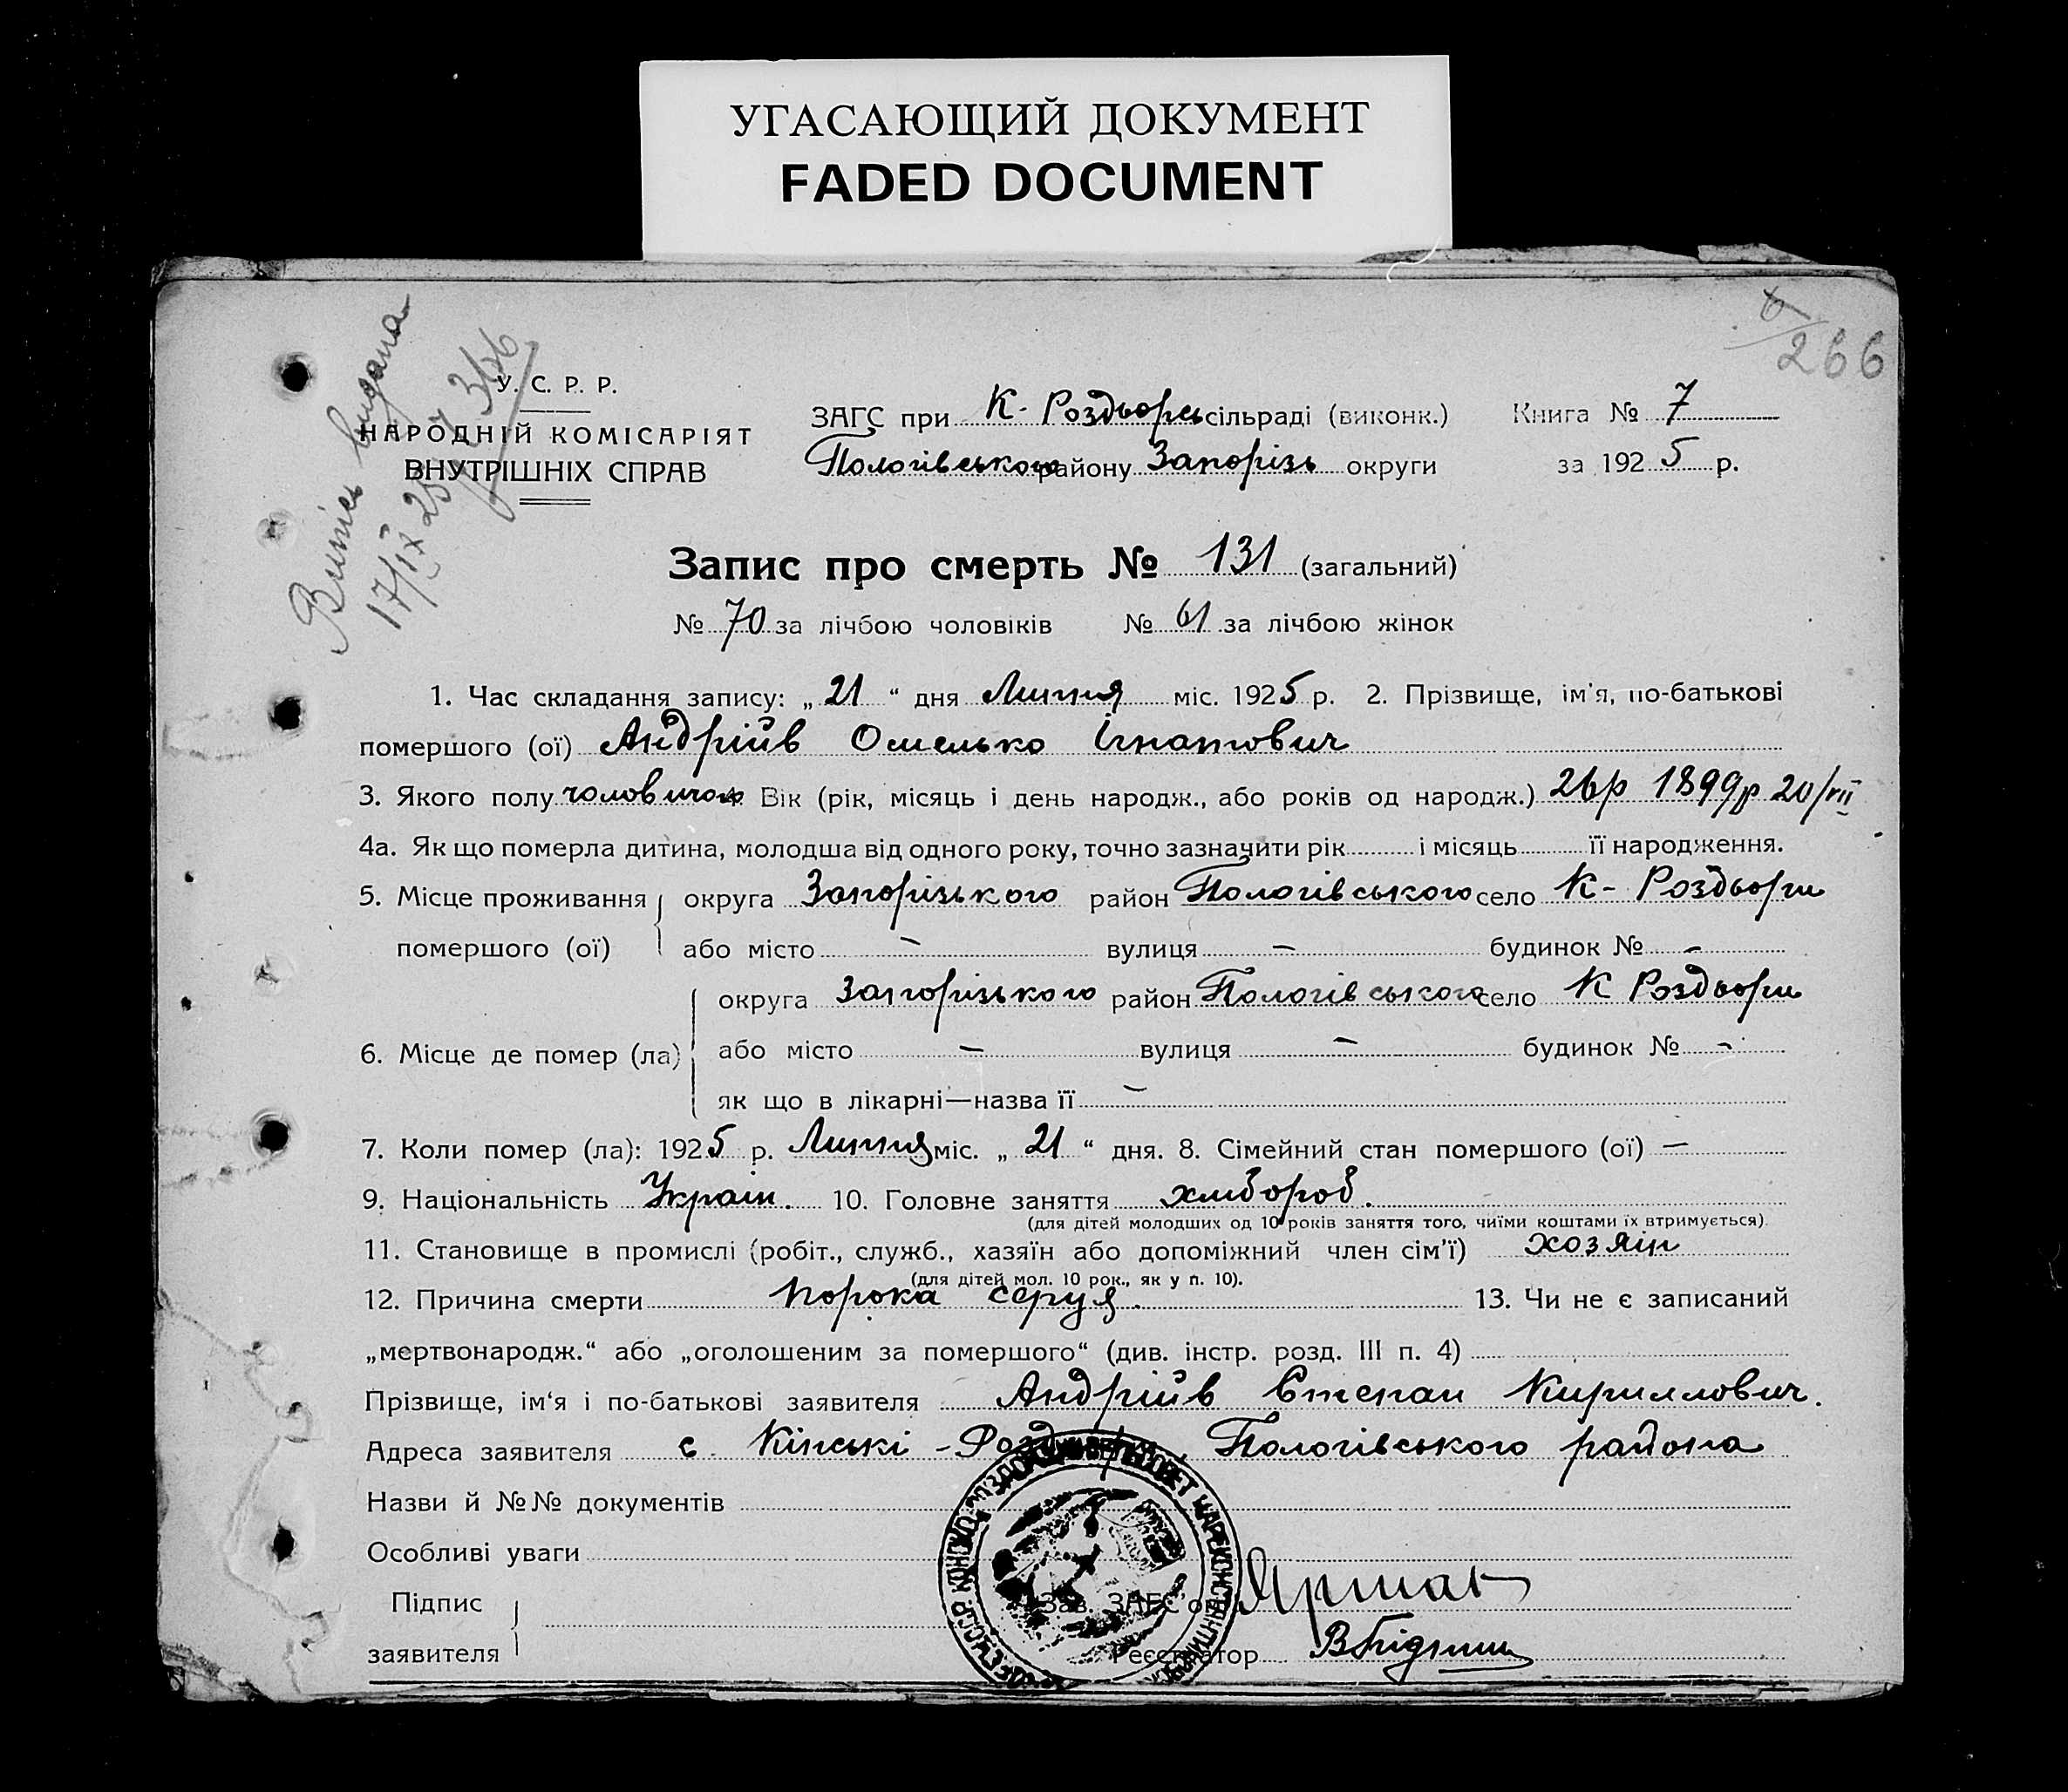 УГАСАЮЩИЙ ДОКУМЕНТ
FADED DOCUMENT
266
Випись видана
17/IX 25
У. С. Р. Р.
НАРОДНІЙ КОМІСАРІЯТ
ВНУТРІШНІХ СПРАВ
ЗАГС при К- Роздорсь сільраді (виконк.) Книга № 7
Пологівського району Запорізь округи за 1925 р.
Запис про смерть № 131 (загальний)
№ 70 за лічбою чоловіків № 61 за лічбою жінок
1. Час складання запису: „ 21 “ дня Липня міс. 1925 р. 2. Прізвище, ім'я, по-батькові
помершого (ої) Андріїв Омелько Ігнатович
3. Якого полу чоловічого 4. Вік (рік, місяць і день народж., або років од народж.) 26р 1899р 20/VII
4а. Як що померла дитина, молодша від одного року, точно зазначити рік і місяць її народження.
5. Місце проживання округа Запорізького район Пологівського село К- Роздьори
помершого (ої) або місто — вулиця — будинок № -
округа Запорізького район Пологівського село К Роздьори
6. Місце де помер (ла) або місто — вулиця — будинок № -
як що в лікарні—назва її —
7. Коли помер (ла): 1925 р. Липня міс. „ 21 “ дня. 8. Сімейний стан помершого (ої) —
9. Національність Украін. 10. Головне заняття хлібороб.
(для дітей молодших од 10 років заняття того, чиїми коштами їх втримується).
11. Становище в промислі (робіт., служб., хазяїн або допоміжний член сім'ї) хозяін
(для дітей мол. 10 рок., як у п. 10).
12. Причина смерти порока серця. 13. Чи не є записаний
„мертвонародж.“ або „оголошеним за помершого“ (див. інстр. розд. III п. 4)
Прізвище, ім'я і по-батькові заявителя Андріїв Степан Кириллович.
Адреса заявителя с. Кінські - Роздори, Пологівського района
Назви й №№ документів
Особливі уваги
Підпис
заявителя
Зав. ЗАГС'ом
Реєстратор